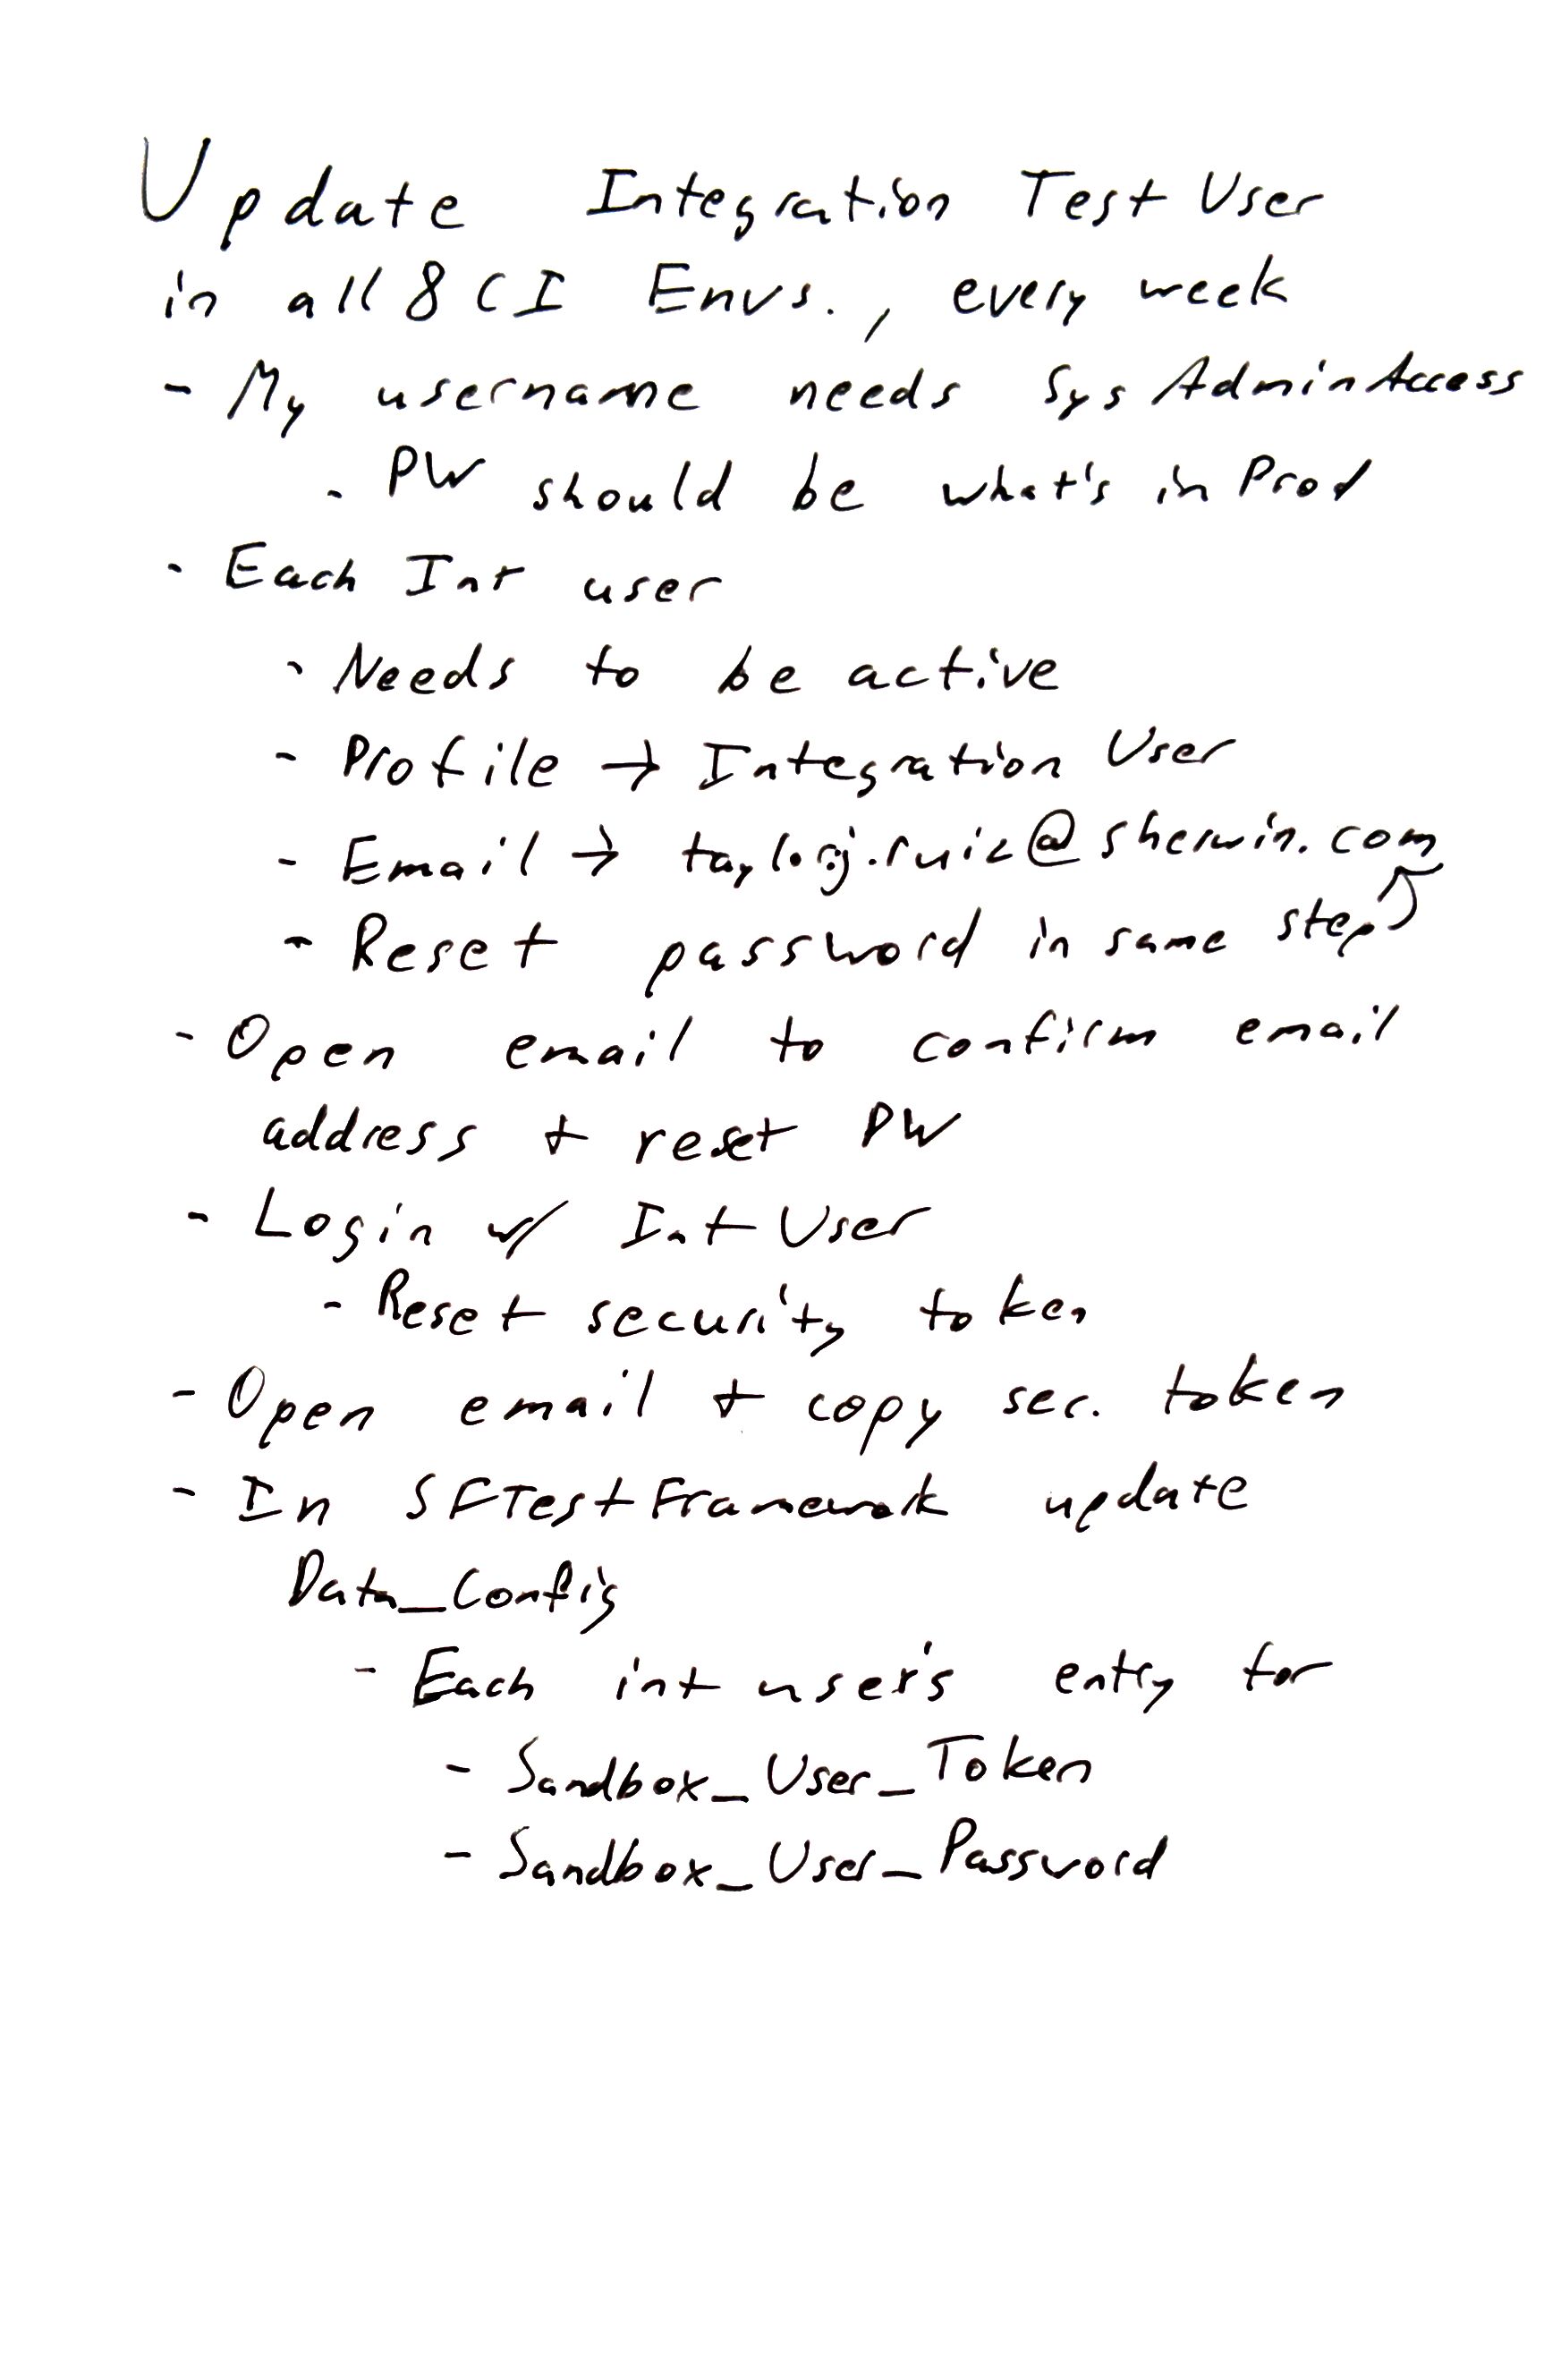 Update Integration Test User
in all 8 CI Envs., every week
- My username needs Sys Admin Access
- PW should be what's in Prod
- Each Int user
- Needs to be active
- Profile → Integration User
- Email → @sherwin.com
- Reset password in same step
- Open email to confirm email
address + reset PW
- Login w/ Int User
- Reset security token
- Open email + copy sec. token
- In SFTestFramework update
Data_Config
- Each int user's entry for
- Sandbox_User_Token
- Sandbox_User_Password